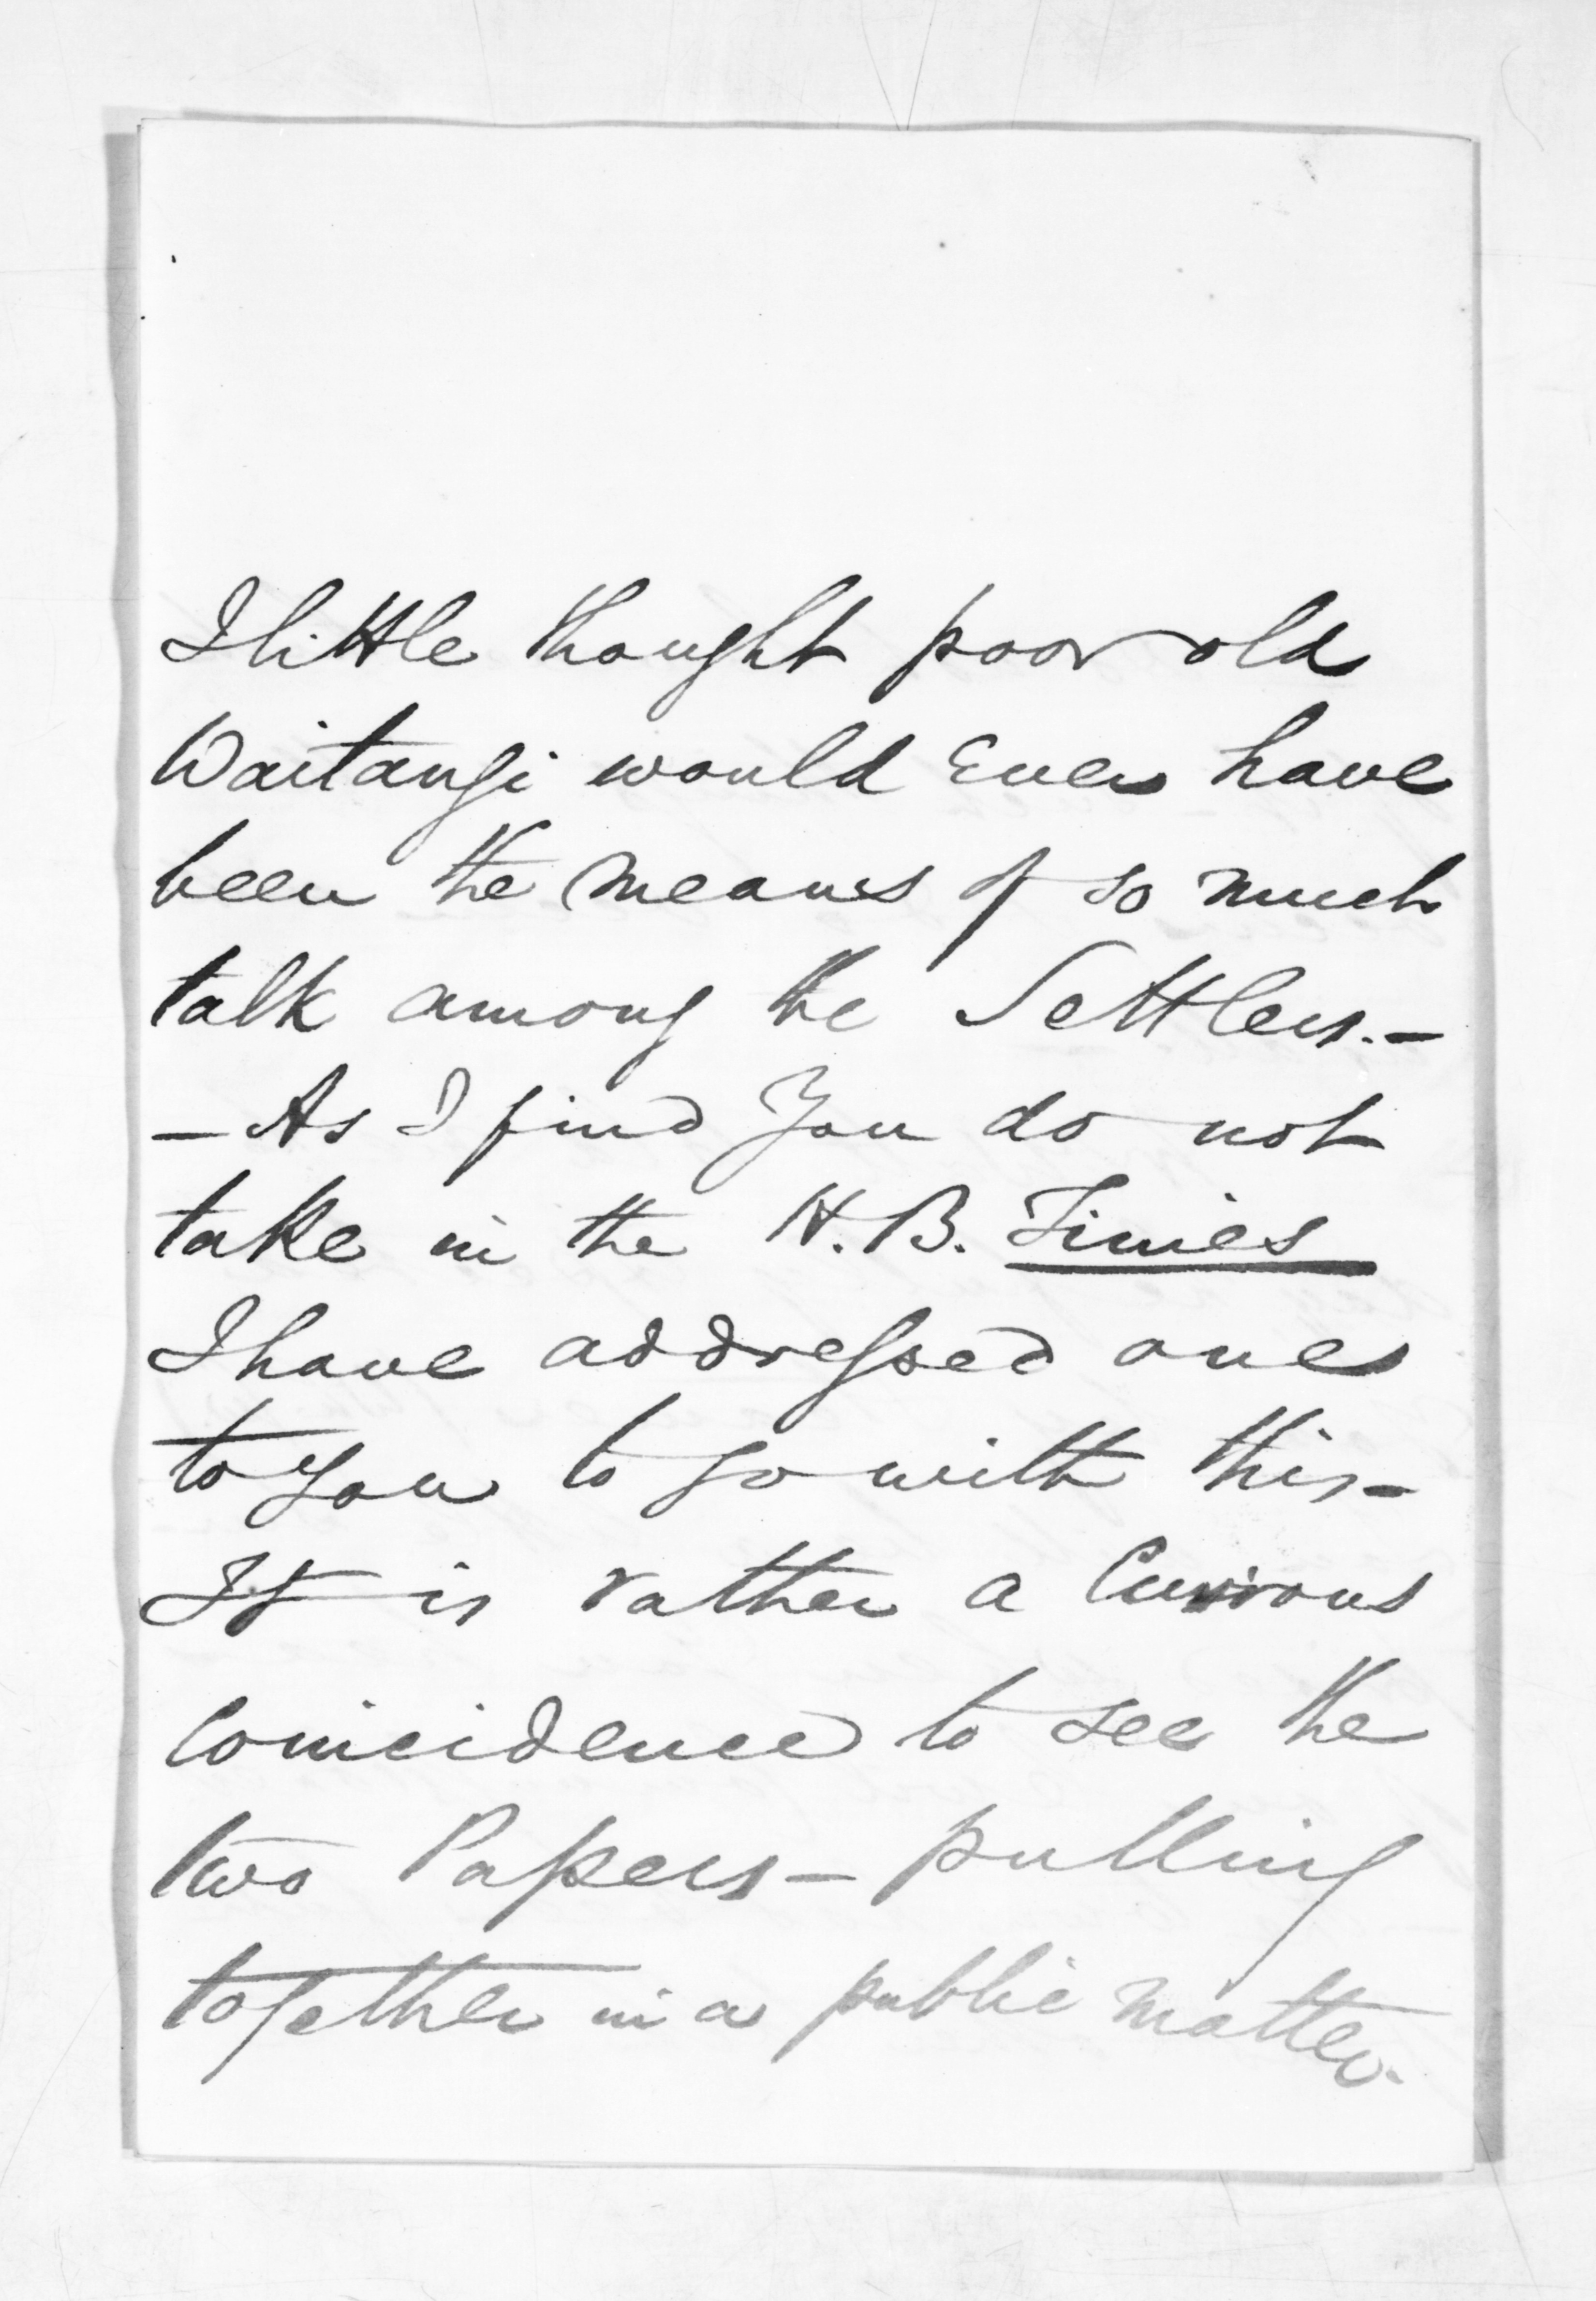 I little thought poor old
Waitangi would Ever have
been the means of so much
talk among the Settlers.—
— As I find You do not
take in the H.B. Times
I have addressed one
to you to go with this—
It is rather a Curious
Coincidence to see the
two Papers— pulling
together in a public matter.